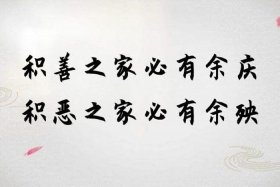 积善之家必有余庆
积恶之家必有余殃